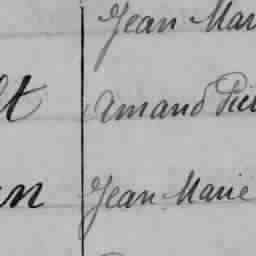 Jean Mar
lt Amand Pie
en Jean Marie